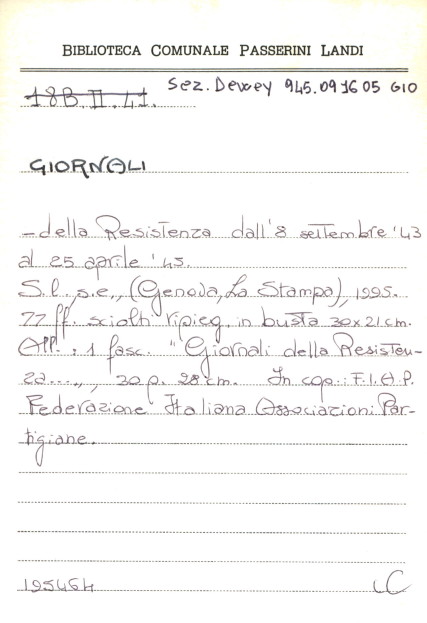 BIBLIOTECA COMUNALE PASSERINI LANDI
Sez. Dewey 945.091605 GIO
18B.II.41.
GIORNALI
- della Resistenza dall'8 settembre '43
al 25 aprile '45.
S.l., s.e., (Genova, La Stampa), 1995.
77 ff. sciolti ripieg. in busta 30x21 cm.
All.: 1 fasc. "Giornali della Resisten-
za...", 30 p. 28 cm. In cop.: F.I.A.P.
Federazione Italiana Associazioni Par-
tigiane.
195464